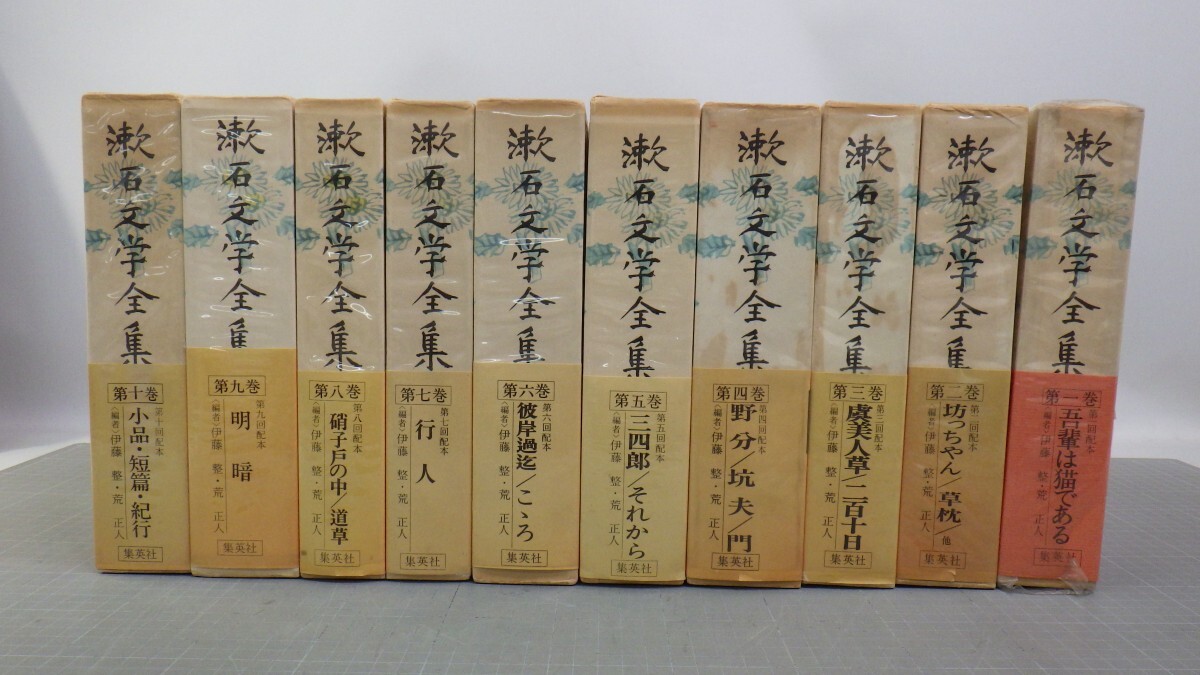 漱石文学全集
第十巻
第十回配本
小品・短篇・紀行
〈編者〉伊藤 整・荒 正人
集英社
漱石文学全集
第九巻
第九回配本
明暗
〈編者〉伊藤 整・荒 正人
集英社
漱石文学全集
第八巻
第八回配本
硝子戸の中/道草
〈編者〉伊藤 整・荒 正人
集英社
漱石文学全集
第七巻
第七回配本
行人
〈編者〉伊藤 整・荒 正人
集英社
漱石文学全集
第六巻
第六回配本
彼岸過迄/こゝろ
〈編者〉伊藤 整・荒 正人
集英社
漱石文学全集
第五巻
第五回配本
三四郎/それから
〈編者〉伊藤 整・荒 正人
集英社
漱石文学全集
第四巻
第四回配本
野分/坑夫/門
〈編者〉伊藤 整・荒 正人
集英社
漱石文学全集
第三巻
第三回配本
虞美人草/二百十日
〈編者〉伊藤 整・荒 正人
集英社
漱石文学全集
第二巻
第二回配本
坊っちゃん/草枕/他
〈編者〉伊藤 整・荒 正人
集英社
漱石文学全集
第一巻
第一回配本
吾輩は猫である
〈編者〉伊藤 整・荒 正人
集英社